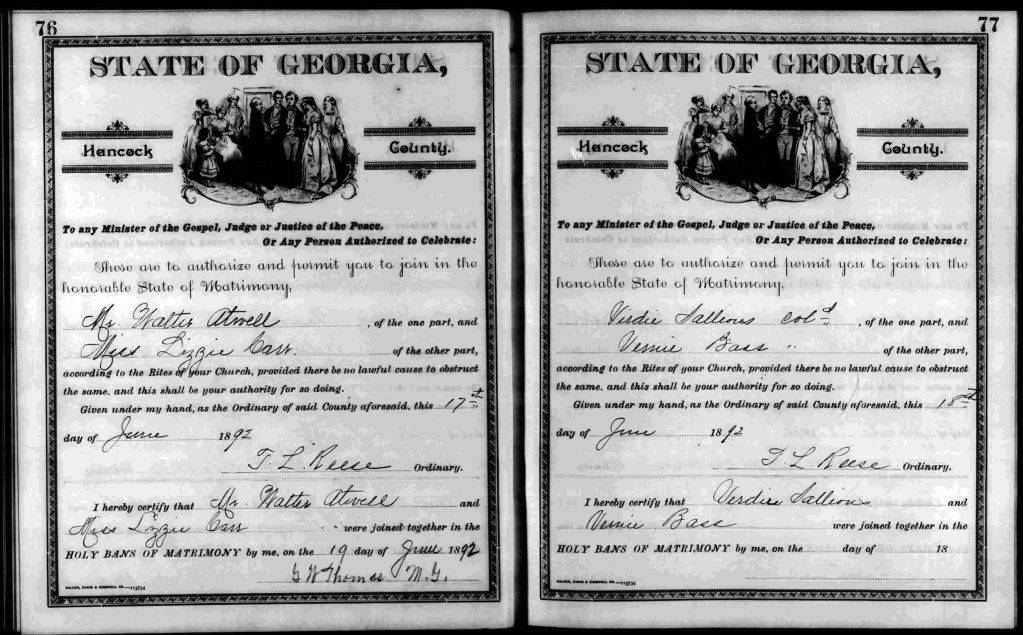 76
STATE OF GEORGIA,
Hancock County.
To any Minister of the Gospel, Judge or Justice of the Peace,
Or Any Person Authorized to Celebrate:
These are to authorize and permit you to join in the
honorable State of Matrimony,
Mr Walter Atwell, of the one part, and
Miss Lizzie Carr. of the other part,
according to the Rites of your Church, provided there be no lawful cause to obstruct
the same, and this shall be your authority for so doing.
Given under my hand, as the Ordinary of said County aforesaid, this 17th
day of June 1892
T. L. Reese Ordinary.
I hereby certify that Mr Walter Atwell and
Miss Lizzie Carr were joined together in the
HOLY BANS OF MATRIMONY by me, on the 19 day of June 1892
G W Thomas M.G.
77
STATE OF GEORGIA,
Hancock County.
To any Minister of the Gospel, Judge or Justice of the Peace,
Or Any Person Authorized to Celebrate:
These are to authorize and permit you to join in the
honorable State of Matrimony,
Verdie Sallions Cold, of the one part, and
Vernie Bass " of the other part,
according to the Rites of your Church, provided there be no lawful cause to obstruct
the same, and this shall be your authority for so doing.
Given under my hand, as the Ordinary of said County aforesaid, this 18th
day of June 1892
T L Reese Ordinary.
I hereby certify that Verdie Sallion and
Vernie Bass were joined together in the
HOLY BANS OF MATRIMONY by me, on the day of 18